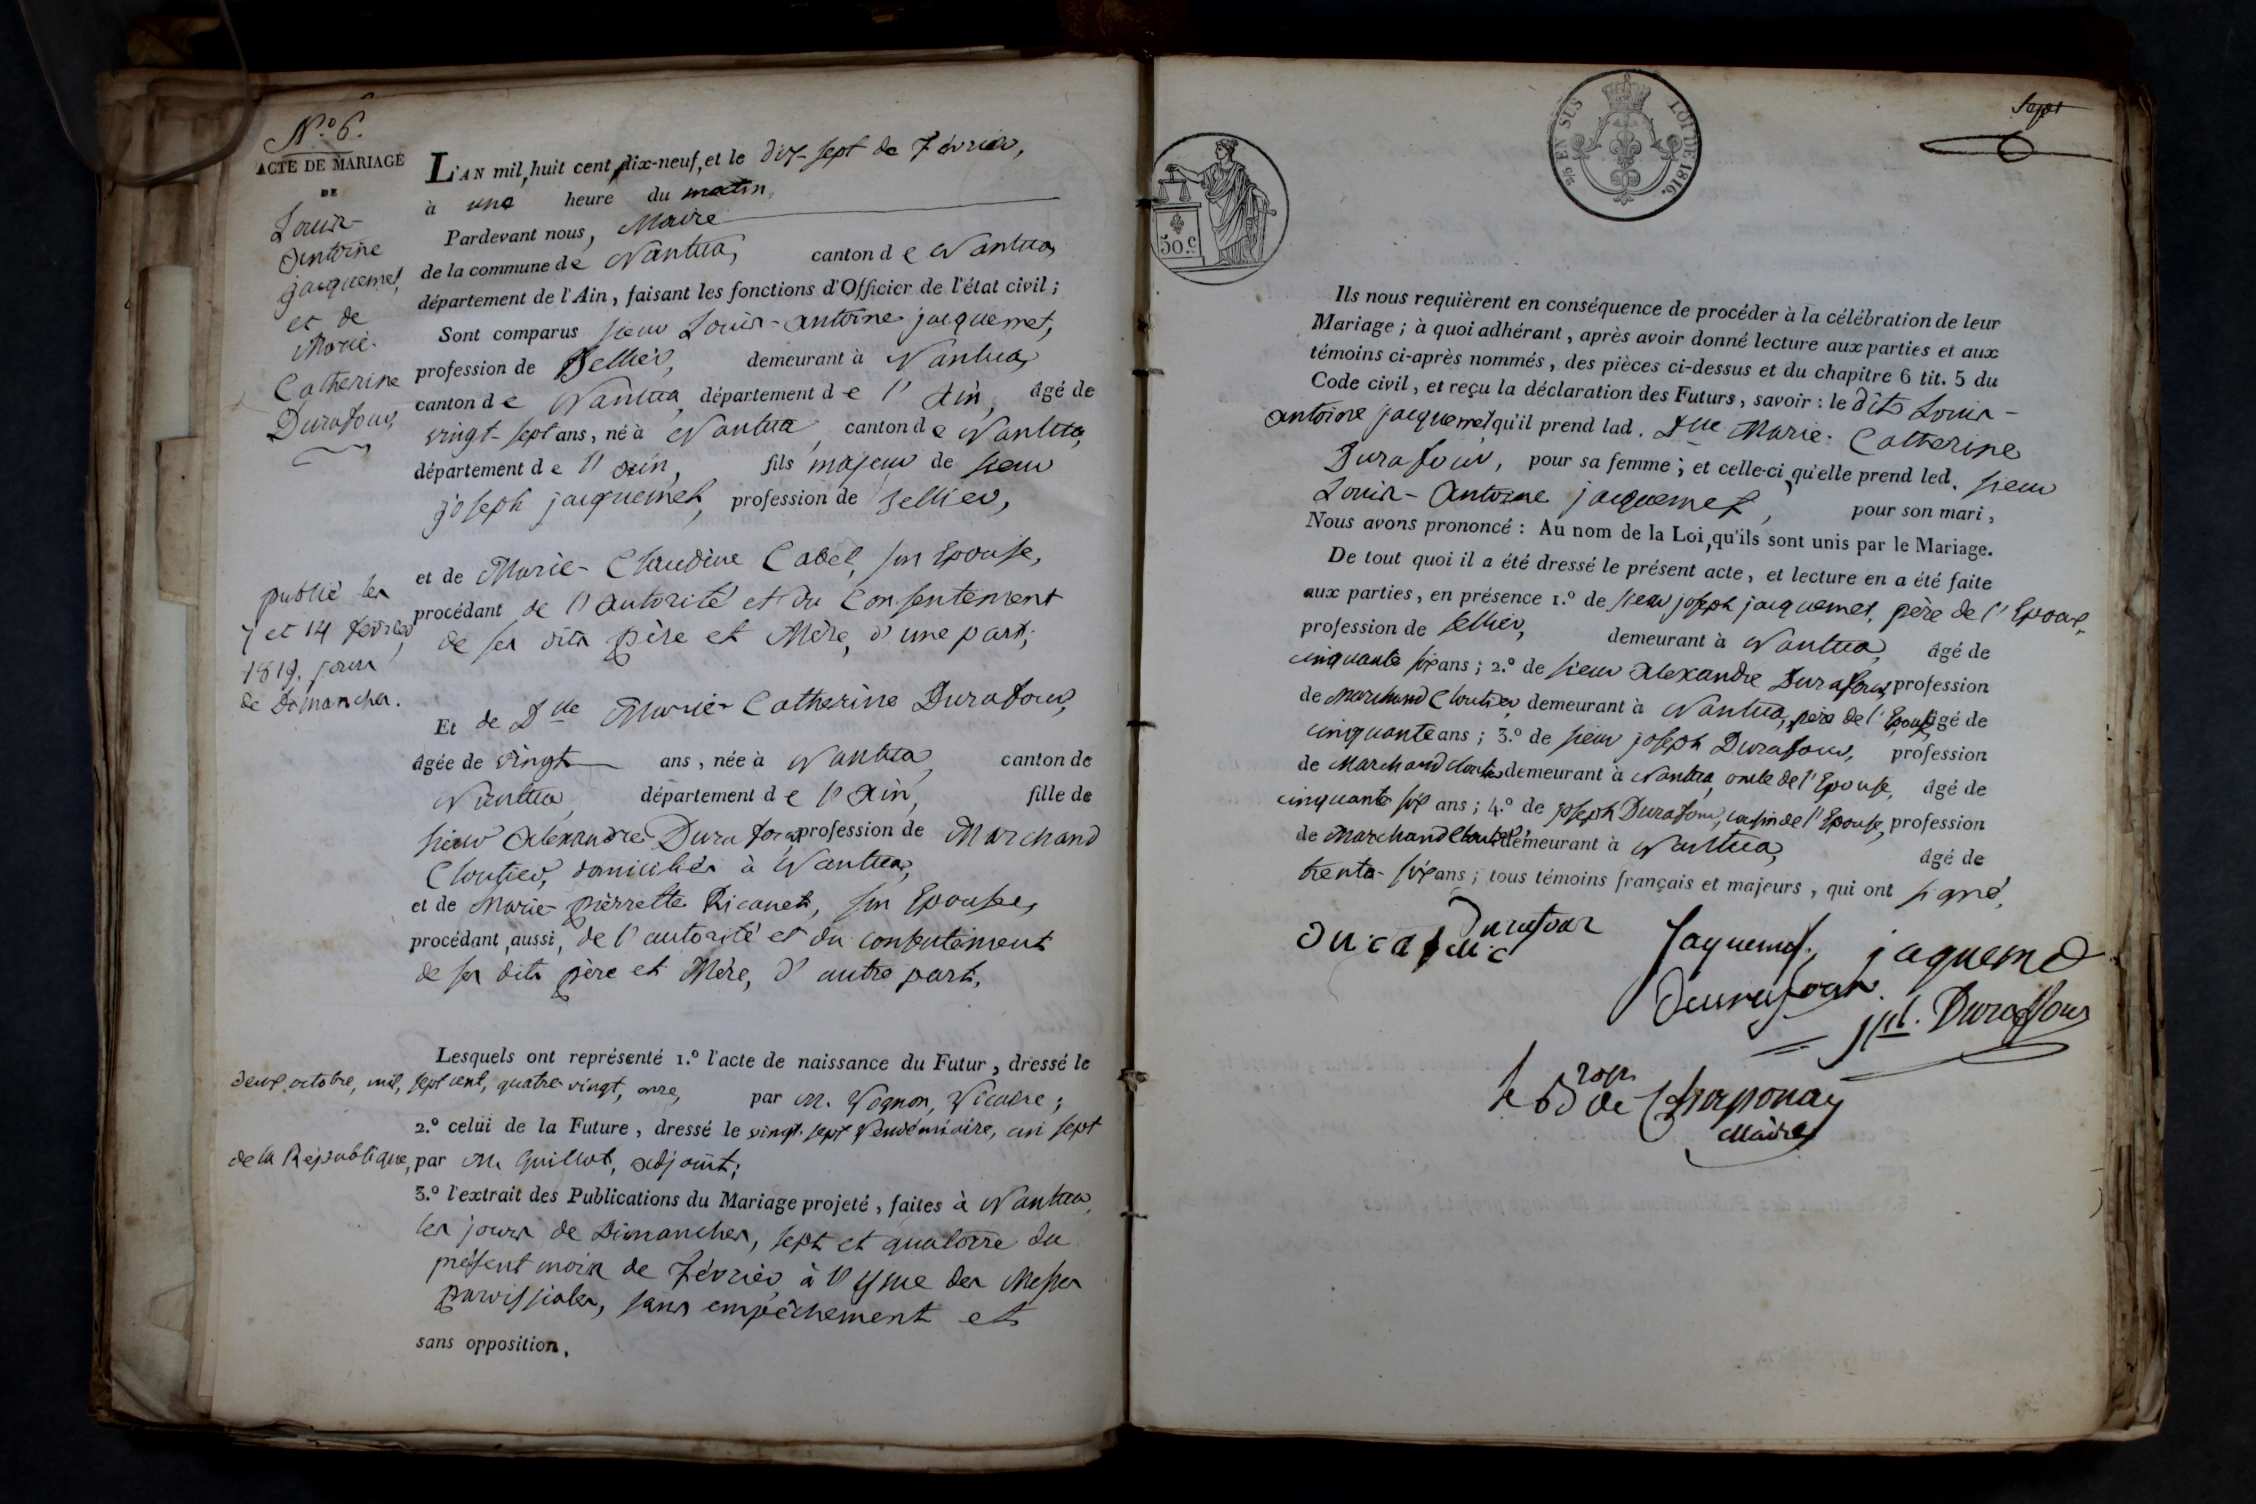 N.º 6.
ACTE DE MARIAGE
DE
Louis-
Antoine
jacquemet,
et de
Marie-
Catherine
Durafour,
publié les
7 et 14 février,
1819, jours
de Dimanches.
L'AN mil, huit cent dix-neuf, et le dix-sept de Février,
à une heure du matin,
Pardevant nous, Maire
de la commune de Nantua, canton de Nantua,
département de l'Ain, faisant les fonctions d'Officier de l'état civil ;
Sont comparus sieur Louis-antoine jacquemet,
profession de Sellier, demeurant à Nantua,
canton de Nantua, département de l'Ain, âgé de
vingt-sept ans, né à Nantua, canton de Nantua,
département de l'ain, fils majeur de sieur
joseph jacquemet, profession de sellier,
et de Marie-Claudine Cabet, son Epouse,
procédant de l'autorité et du Consentement
de ses dits père et Mère, d'une part;
Et de Dlle Marie-Catherine Durafour,
âgée de vingt ans, née à Nantua, canton de
Nantua, département de l'Ain, fille de
sieur Alexandre Durafour, profession de Marchand
Cloutier, domiciliés à Nantua,
et de Marie-pierrette Ricanet, son Epouse,
procédant, aussi, de l'autorité et du consentement
de ses dits père et Mère, d'autre part.
Lesquels ont représenté 1.º l'acte de naissance du Futur, dressé le
deux octobre, mil, sept cent, quatre vingt, onze, par M. Vognon, Vicaire ;
2.º celui de la Future, dressé le vingt-sept Vendémiaire, an sept
de la République, par M. Guillot, adjoint;
3.º l'extrait des Publications du Mariage projeté, faites à Nantua,
les jours de Dimanches, sept et quatorze du
présent mois de Février, à l'ysue des Messes
parroissiales, sans empêchement et
sans opposition.
5/6 EN SUS LOI DE 1816.
50 C.
Sept
Ils nous requièrent en conséquence de procéder à la célébration de leur
Mariage ; à quoi adhérant, après avoir donné lecture aux parties et aux
témoins ci-après nommés, des pièces ci-dessus et du chapitre 6 tit. 5 du
Code civil, et reçu la déclaration des Futurs, savoir : le dits Louis-
antoine jacquemet qu'il prend lad. Dlle Marie-Catherine
Durafour, pour sa femme ; et celle-ci qu'elle prend led. sieur
Louis-Antoine jacquemet, pour son mari,
Nous avons prononcé : Au nom de la Loi, qu'ils sont unis par le Mariage.
De tout quoi il a été dressé le présent acte, et lecture en a été faite
aux parties, en présence 1.º de sieur joseph jacquemet, père de l'Epoux,
profession de sellier, demeurant à Nantua, âgé de
cinquante six ans ; 2.º de sieur Alexandre Durafour, profession
de Marchand Cloutier demeurant à Nantua, père de l'Epouse, âgé de
cinquante ans ; 3.º de sieur joseph Durafour, profession
de Marchand cloutier demeurant à Nantua, oncle de l'Epouse, âgé de
cinquante six ans ; 4.º de joseph Durafour, cousin de l'Epouse, profession
de Marchand Cloutier demeurant à Nantua, âgé de
trente-six ans ; tous témoins français et majeurs, qui ont signé.
Durafour
Jaquemet jaquemet
Durafour
Jph. Duraffour
le Bon de Chaponay
Maire